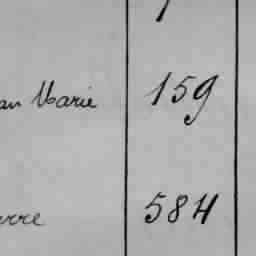 an Marie 159
rre 584